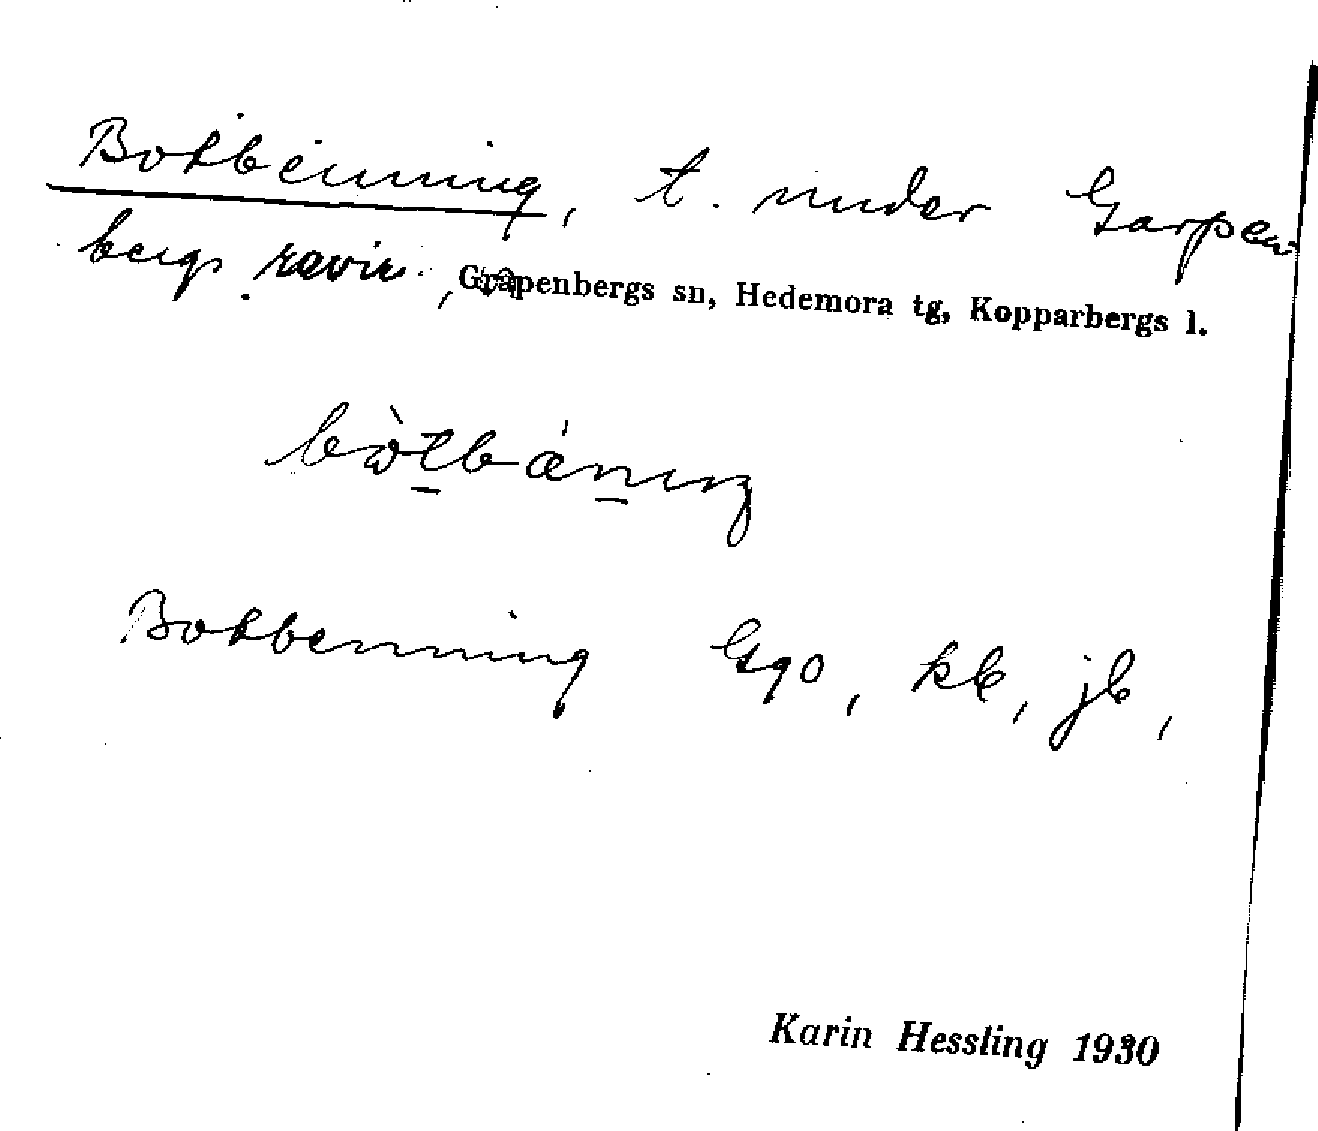 Botbenning, t. under Garpen
bergs revir.
, Grapenbergs sn, Hedemora tg, Kopparbergs l.
Botbenning Ggo, kb, jb,
Karin Hessling 1930